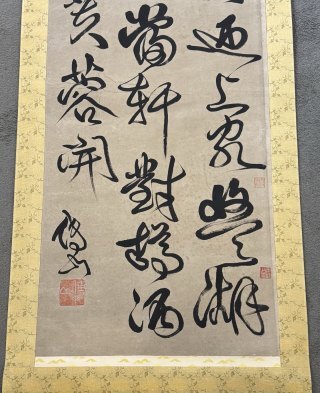 迎上客悠々湖
當軒對樽酒
芙蓉開
傅山